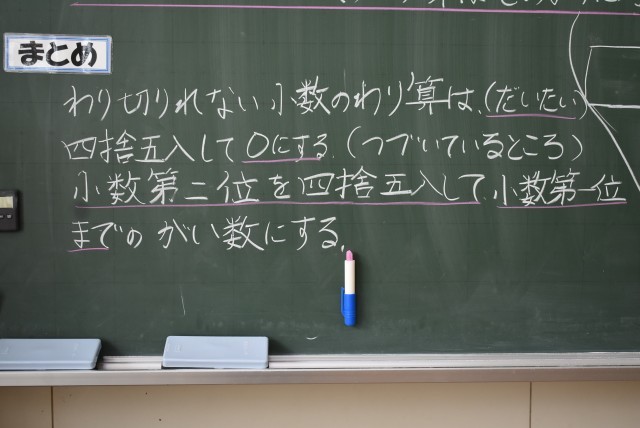 まとめ
わり切りれない小数のわり算は、(だいたい)
四捨五入して0にする。(つづいているところ)
小数第二位を四捨五入して、小数第一位
までの がい数にする。